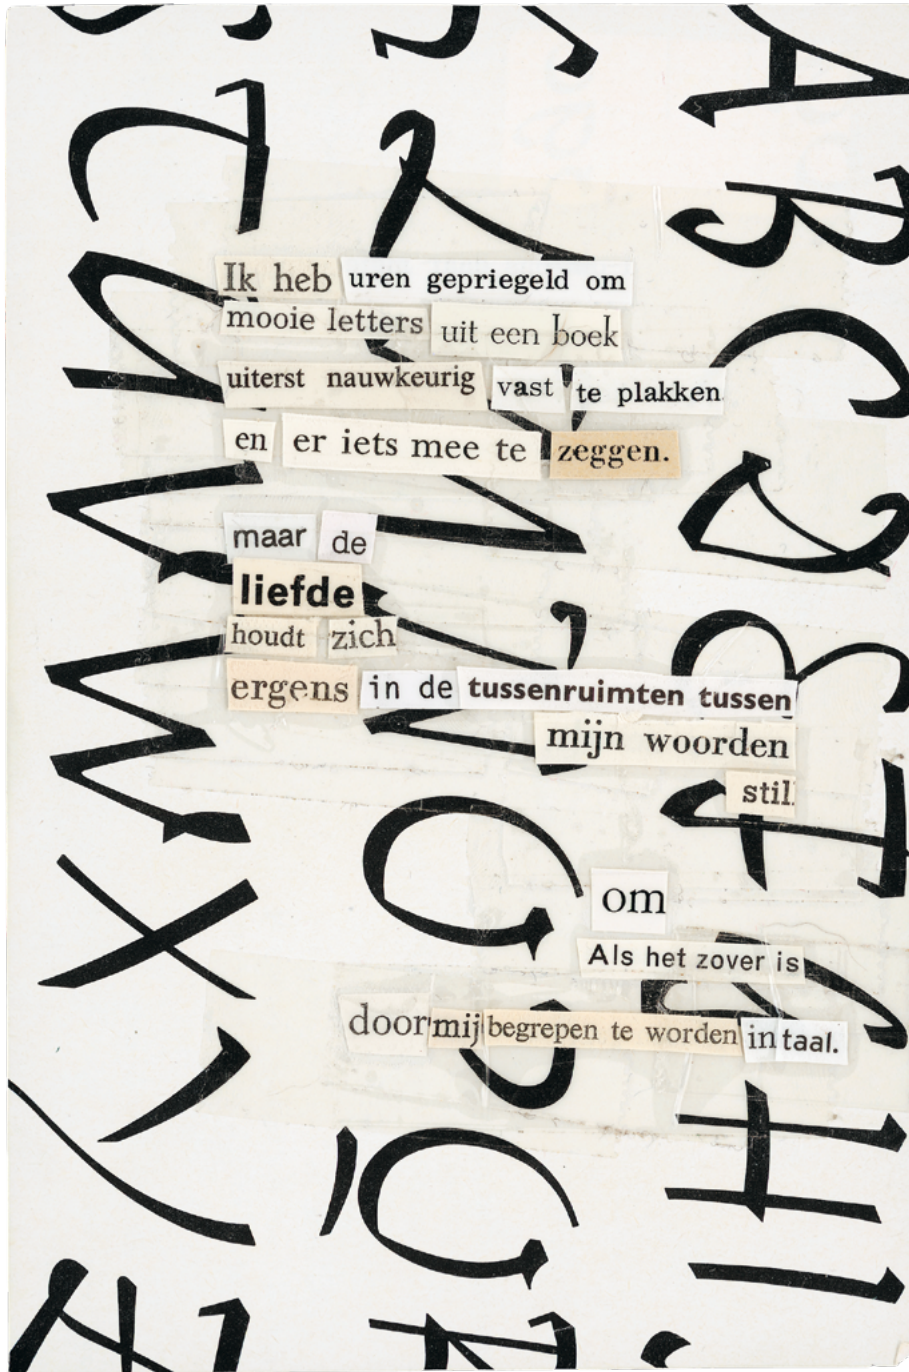 Ik heb uren gepriegeld om
mooie letters uit een boek
uiterst nauwkeurig vast te plakken
en er iets mee te zeggen.
maar de
liefde
houdt zich
ergens in de tussenruimten tussen
mijn woorden
stil
om
Als het zover is
door mij begrepen te worden in taal.